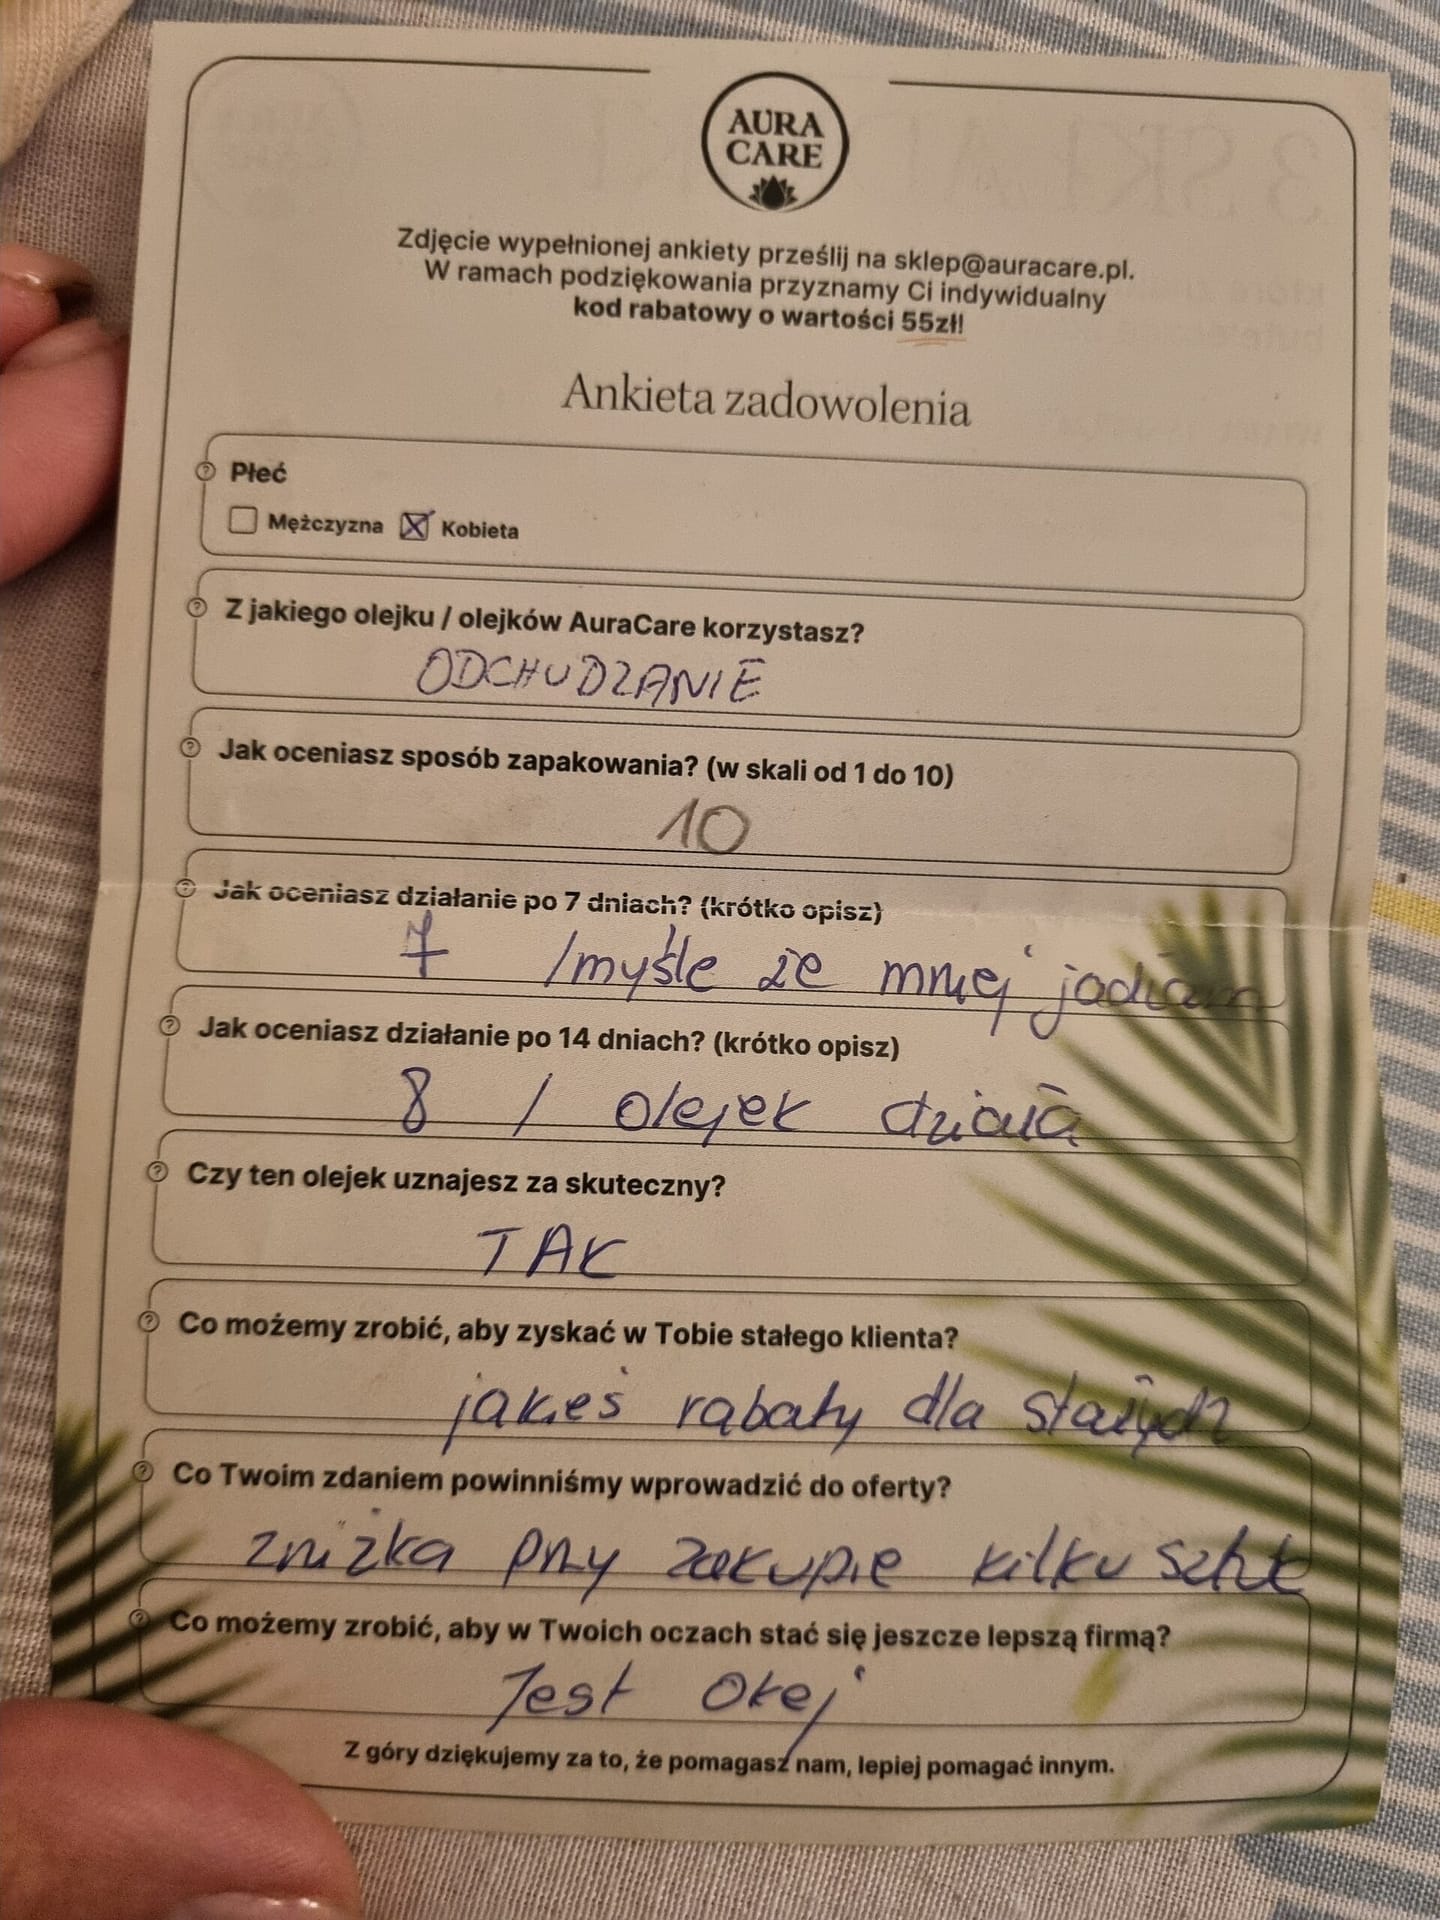 AURA
CARE
Zdjęcie wypełnionej ankiety prześlij na sklep@auracare.pl.
W ramach podziękowania przyznamy Ci indywidualny
kod rabatowy o wartości 55zł!
Ankieta zadowolenia
Płeć
Mężczyzna Kobieta
Z jakiego olejku / olejków AuraCare korzystasz?
ODCHUDZANIE
Jak oceniasz sposób zapakowania? (w skali od 1 do 10)
10
Jak oceniasz działanie po 7 dniach? (krótko opisz)
7 /myśle że mniej jadłam
Jak oceniasz działanie po 14 dniach? (krótko opisz)
8 / olejek działa
Czy ten olejek uznajesz za skuteczny?
TAK
Co możemy zrobić, aby zyskać w Tobie stałego klienta?
jakieś rabaty dla stałych
Co Twoim zdaniem powinniśmy wprowadzić do oferty?
zniżka przy zakupie kilku sztuk
Co możemy zrobić, aby w Twoich oczach stać się jeszcze lepszą firmą?
Jest okej
Z góry dziękujemy za to, że pomagasz nam, lepiej pomagać innym.